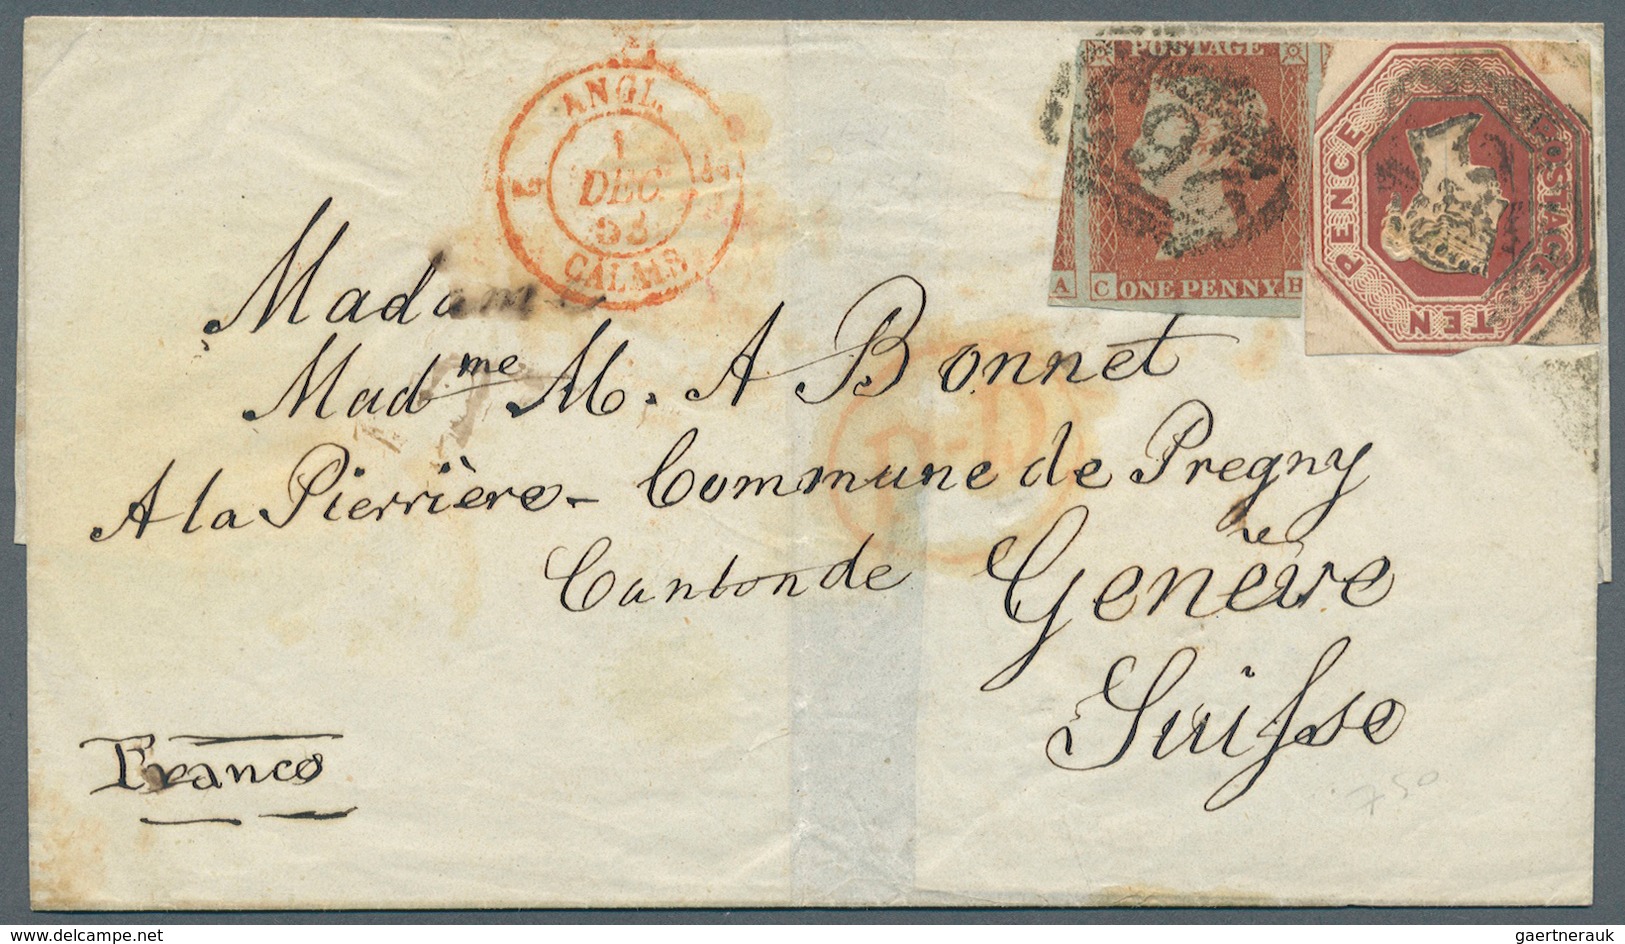 ANGL.
1
DEC.
53
CALAIS
POSTAGE
A
C ONE PENNY. B
POSTAGE
TEN PENCE
P.D.
Madame
Madme M. A Bonnet
A la Pierrière - Commune de Pregny
Canton de Genève
Suisse
Franco
750
www.delcampe.net
gaertnerauk